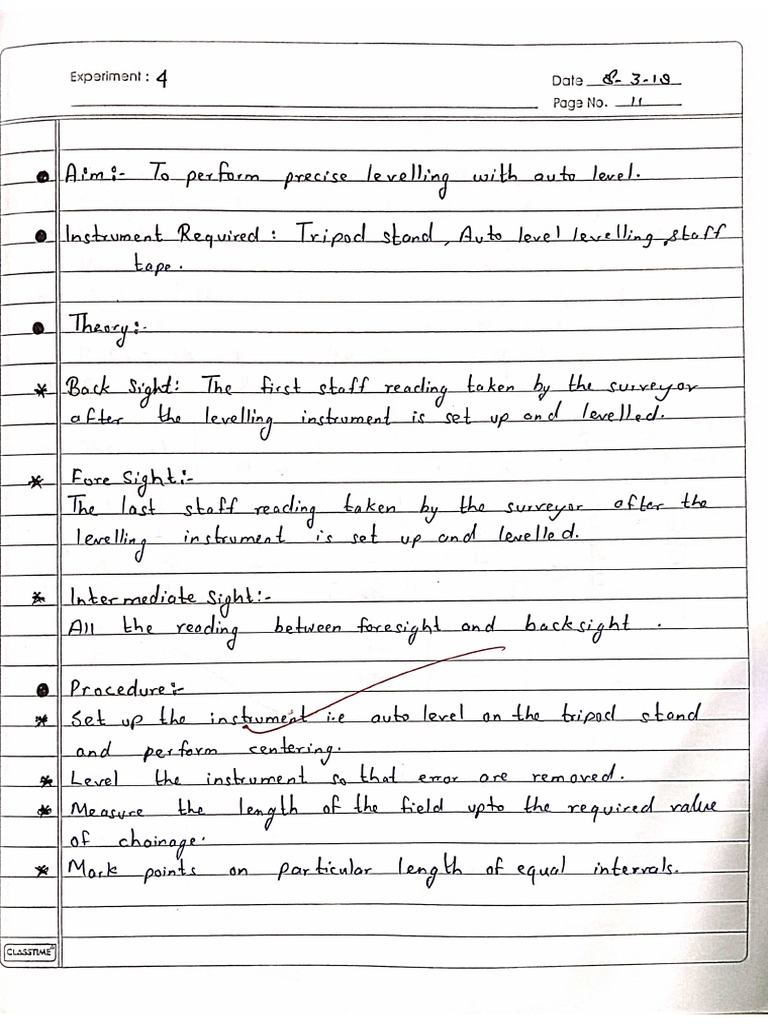 Experiment : 4
Date 8-3-18
Page No. 11
Aim:- To perform precise levelling with auto level.
Instrument Required : Tripod stand, Auto level levelling, staff
tape.
Theory:-
* Back Sight: The first staff reading taken by the surveyor
after the levelling instrument is set up and levelled.
* Fore Sight:-
The last staff reading taken by the surveyor after the
levelling instrument is set up and levelled.
* Intermediate Sight:-
All the reading between foresight and backsight .
Procedure:-
* Set up the instrument i.e auto level on the tripod stand
and perform centering.
* Level the instrument so that error are removed.
* Measure the length of the field upto the required value
of chainage.
* Mark points on particular length of equal intervals.
CLASSTIME